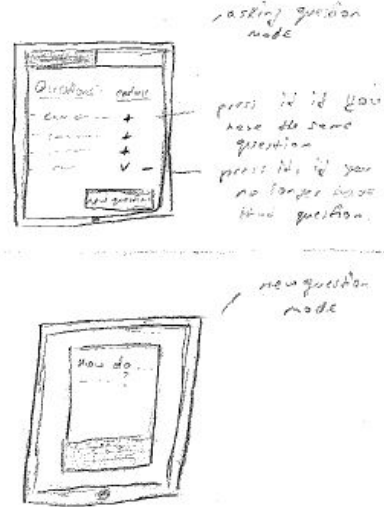 asking question
mode
Questions: endorse
+
+
+
✓ -
new question
press it if you
have the same
question
press it, if you
no longer have
that question.
new question
mode
How do ...
?